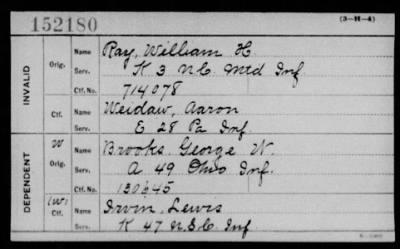 152180
(3-H-4)
INVALID
Orig.
Name Ray, William H.
Serv. K 3 N.C. Mtd Inf.
Ctf. No. 714078
Ctf.
Name Weidaw, Aaron
Serv. E 28 Pa Inf.
DEPENDENT
W
Orig.
Name Brooks, George W.
Serv. A 49 Ohio Inf.
Ctf. No. 130645
(W)
Ctf.
Name Irvin, Lewis
Serv. K 47 U.S.C. Inf